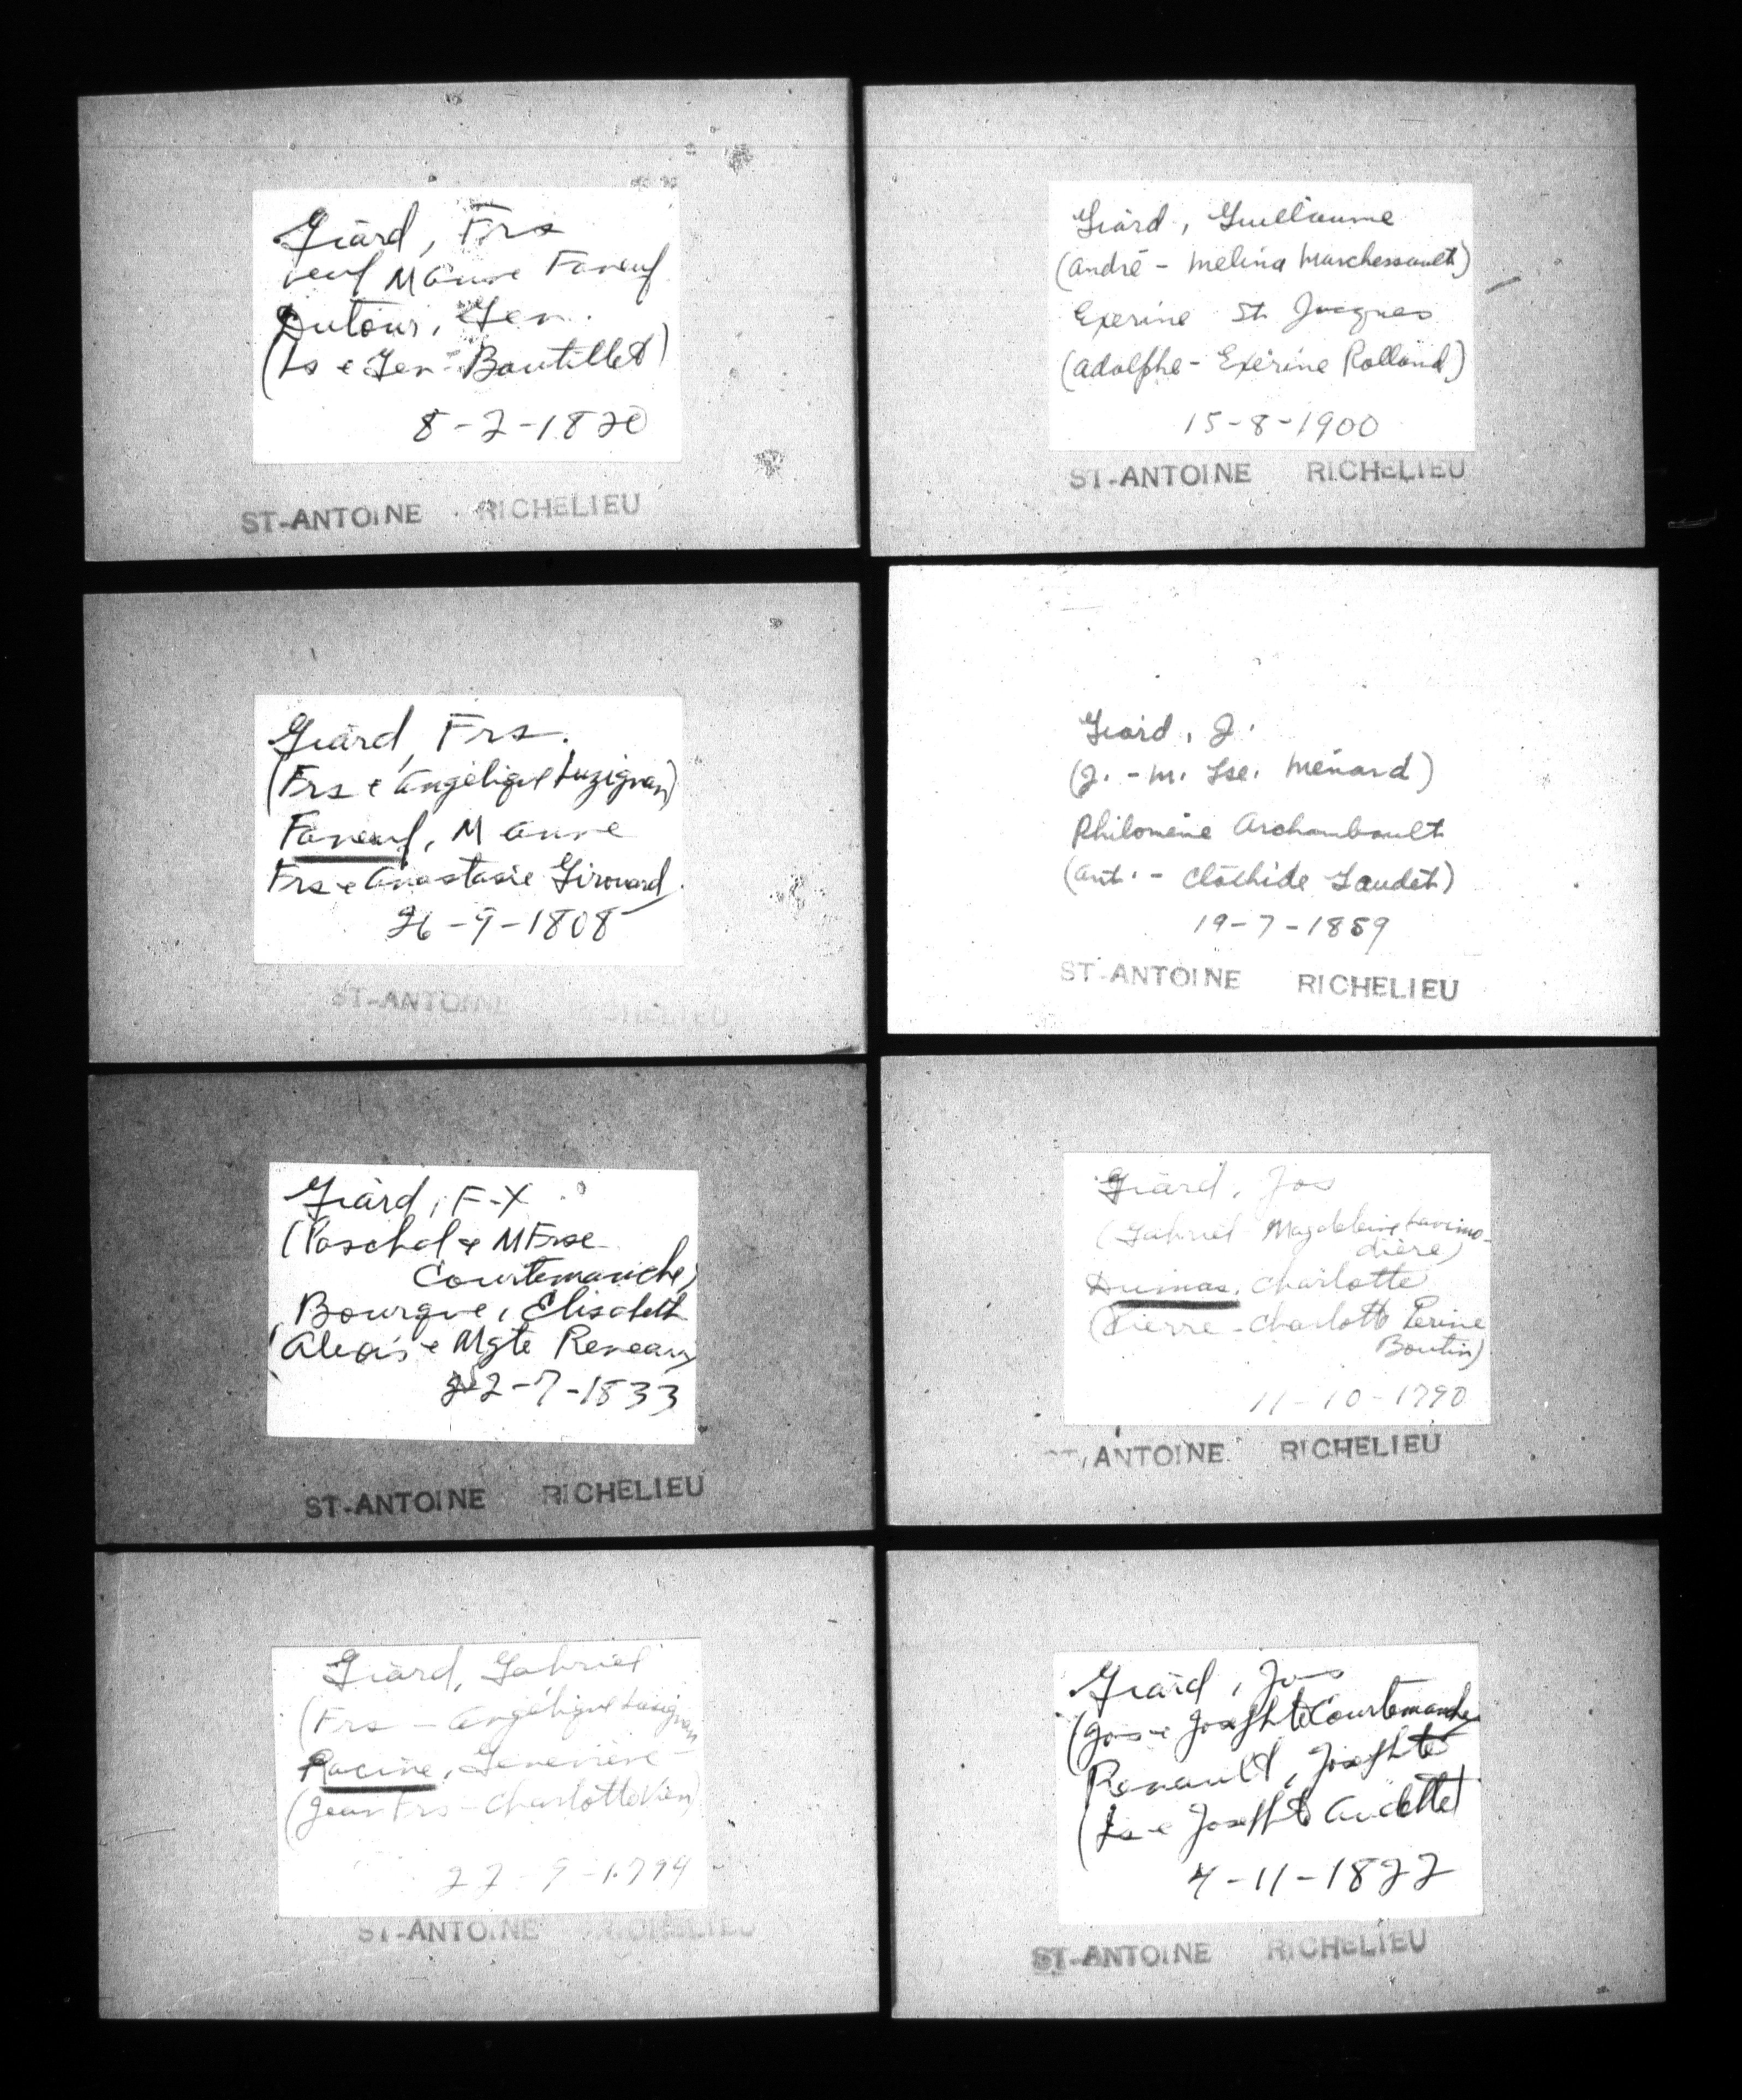 Giard, Frs
veuf M Anne Faneuf
Dutour, Gen.
(Ls e Gen. Boutillet)
8-2-1820
ST-ANTOINE RICHELIEU
Giard, Frs.
(Frs e Angélique Luzignan)
Faneuf, M Anne
Frs e Anastasie Girouard
26-9-1808
ST-ANTOINE RICHELIEU
Giard, F-X
(Paschal e M Frse
Courtemanche)
Bourque, Elisabeth
(Alexis e Mgte Reneau)
22-7-1833
ST-ANTOINE RICHELIEU
Giard, Gabriel
(Frs - Angélique Lusignan
Racine, Geneviève
(Jean Frs - Charlotte Vien)
22-9-1794
ST-ANTOINE RICHELIEU
Giard, Guillaume
(André - Melina Marchessault)
Exerine St Jacques
(Adolphe - Exérine Rolland)
15-8-1900
ST-ANTOINE RICHELIEU
Giard, J.
(J. - M. Lse. Ménard)
Philomène Archambault
(Ant. - Clothide Gaudet)
19-7-1859
ST-ANTOINE RICHELIEU
Giard, Jos
(Gabriel - Magdeleine Lavimo-
dière)
Dumas, Charlotte
(Pierre - Charlotte Perine
Boutin)
11-10-1790
ST-ANTOINE RICHELIEU
Giard, Jos
(Jos e Josephte Courtemanche
Renault, Josephte
(Ls e Josephte Audette)
4-11-1822
ST-ANTOINE RICHELIEU